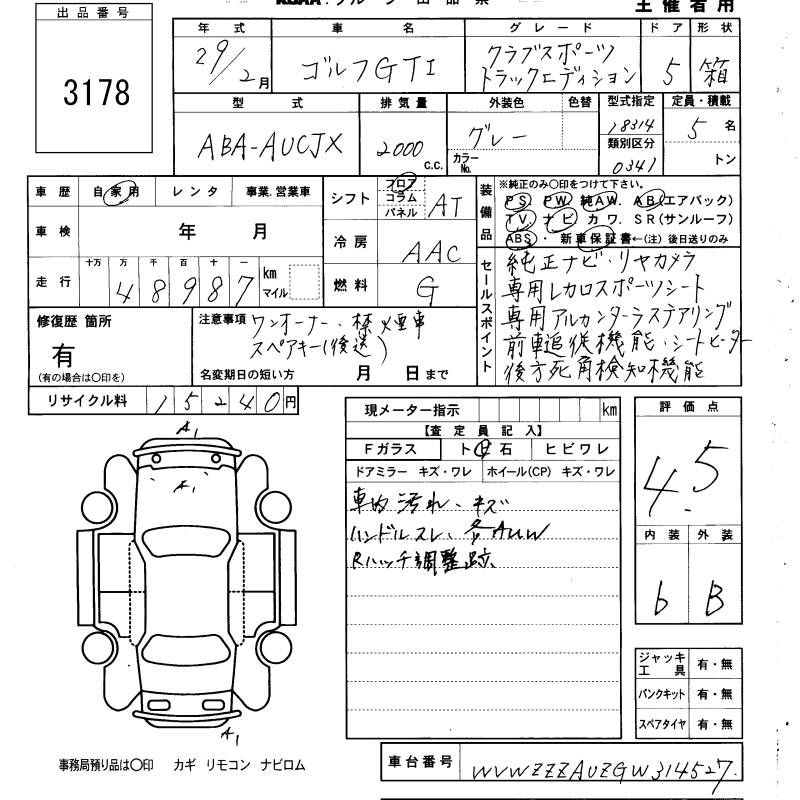 出品番号
3178
主催者用
年式 車名 グレード ドア 形状
29/2月 ゴルフGTI クラブスポーツ
トラックエディション 5 箱
型式 排気量 外装色 色替 型式指定 定員・積載
ABA-AUCJX 2000 c.c. グレー 18314 5名
カラーNo. 類別区分 0341 トン
車歴 自家用 レンタ 事業.営業車
車検 年 月
走行 十万 万 千 百 十 一
48987 km マイル
シフト フロア コラム パネル AT
冷房 AAC
燃料 G
装備品 ※純正のみ〇印をつけて下さい。
PS PW 純AW. AB(エアバック)
TV. ナビ カワ. SR(サンルーフ)
ABS・ 新車保証書←(注) 後日送りのみ
セールスポイント
純正ナビ・リヤカメラ
専用レカロスポーツシート
専用アルカンターラステアリング
前車追従機能・シートヒーター
後方死角検知機能
修復歴 箇所
有
(有の場合は〇印を)
注意事項 ワンオーナー・禁煙車
スペアキー(後送)
名変期日の短い方 月 日まで
リサイクル料 15240円
現メーター指示 km
【査定員記入】
Fガラス ト石 ヒビワレ
ドアミラー キズ・ワレ ホイール(CP) キズ・ワレ
車内汚れ、キズ
ハンドルスレ、各AUW
Rハッチ調整跡
評価点
4.5
内装 外装
b B
A1
A1
A1
ジャッキ工具 有・無
パンクキット 有・無
スペアタイヤ 有・無
事務局預り品は〇印 カギ リモコン ナビロム
車台番号 WVWZZZAUZGW314527